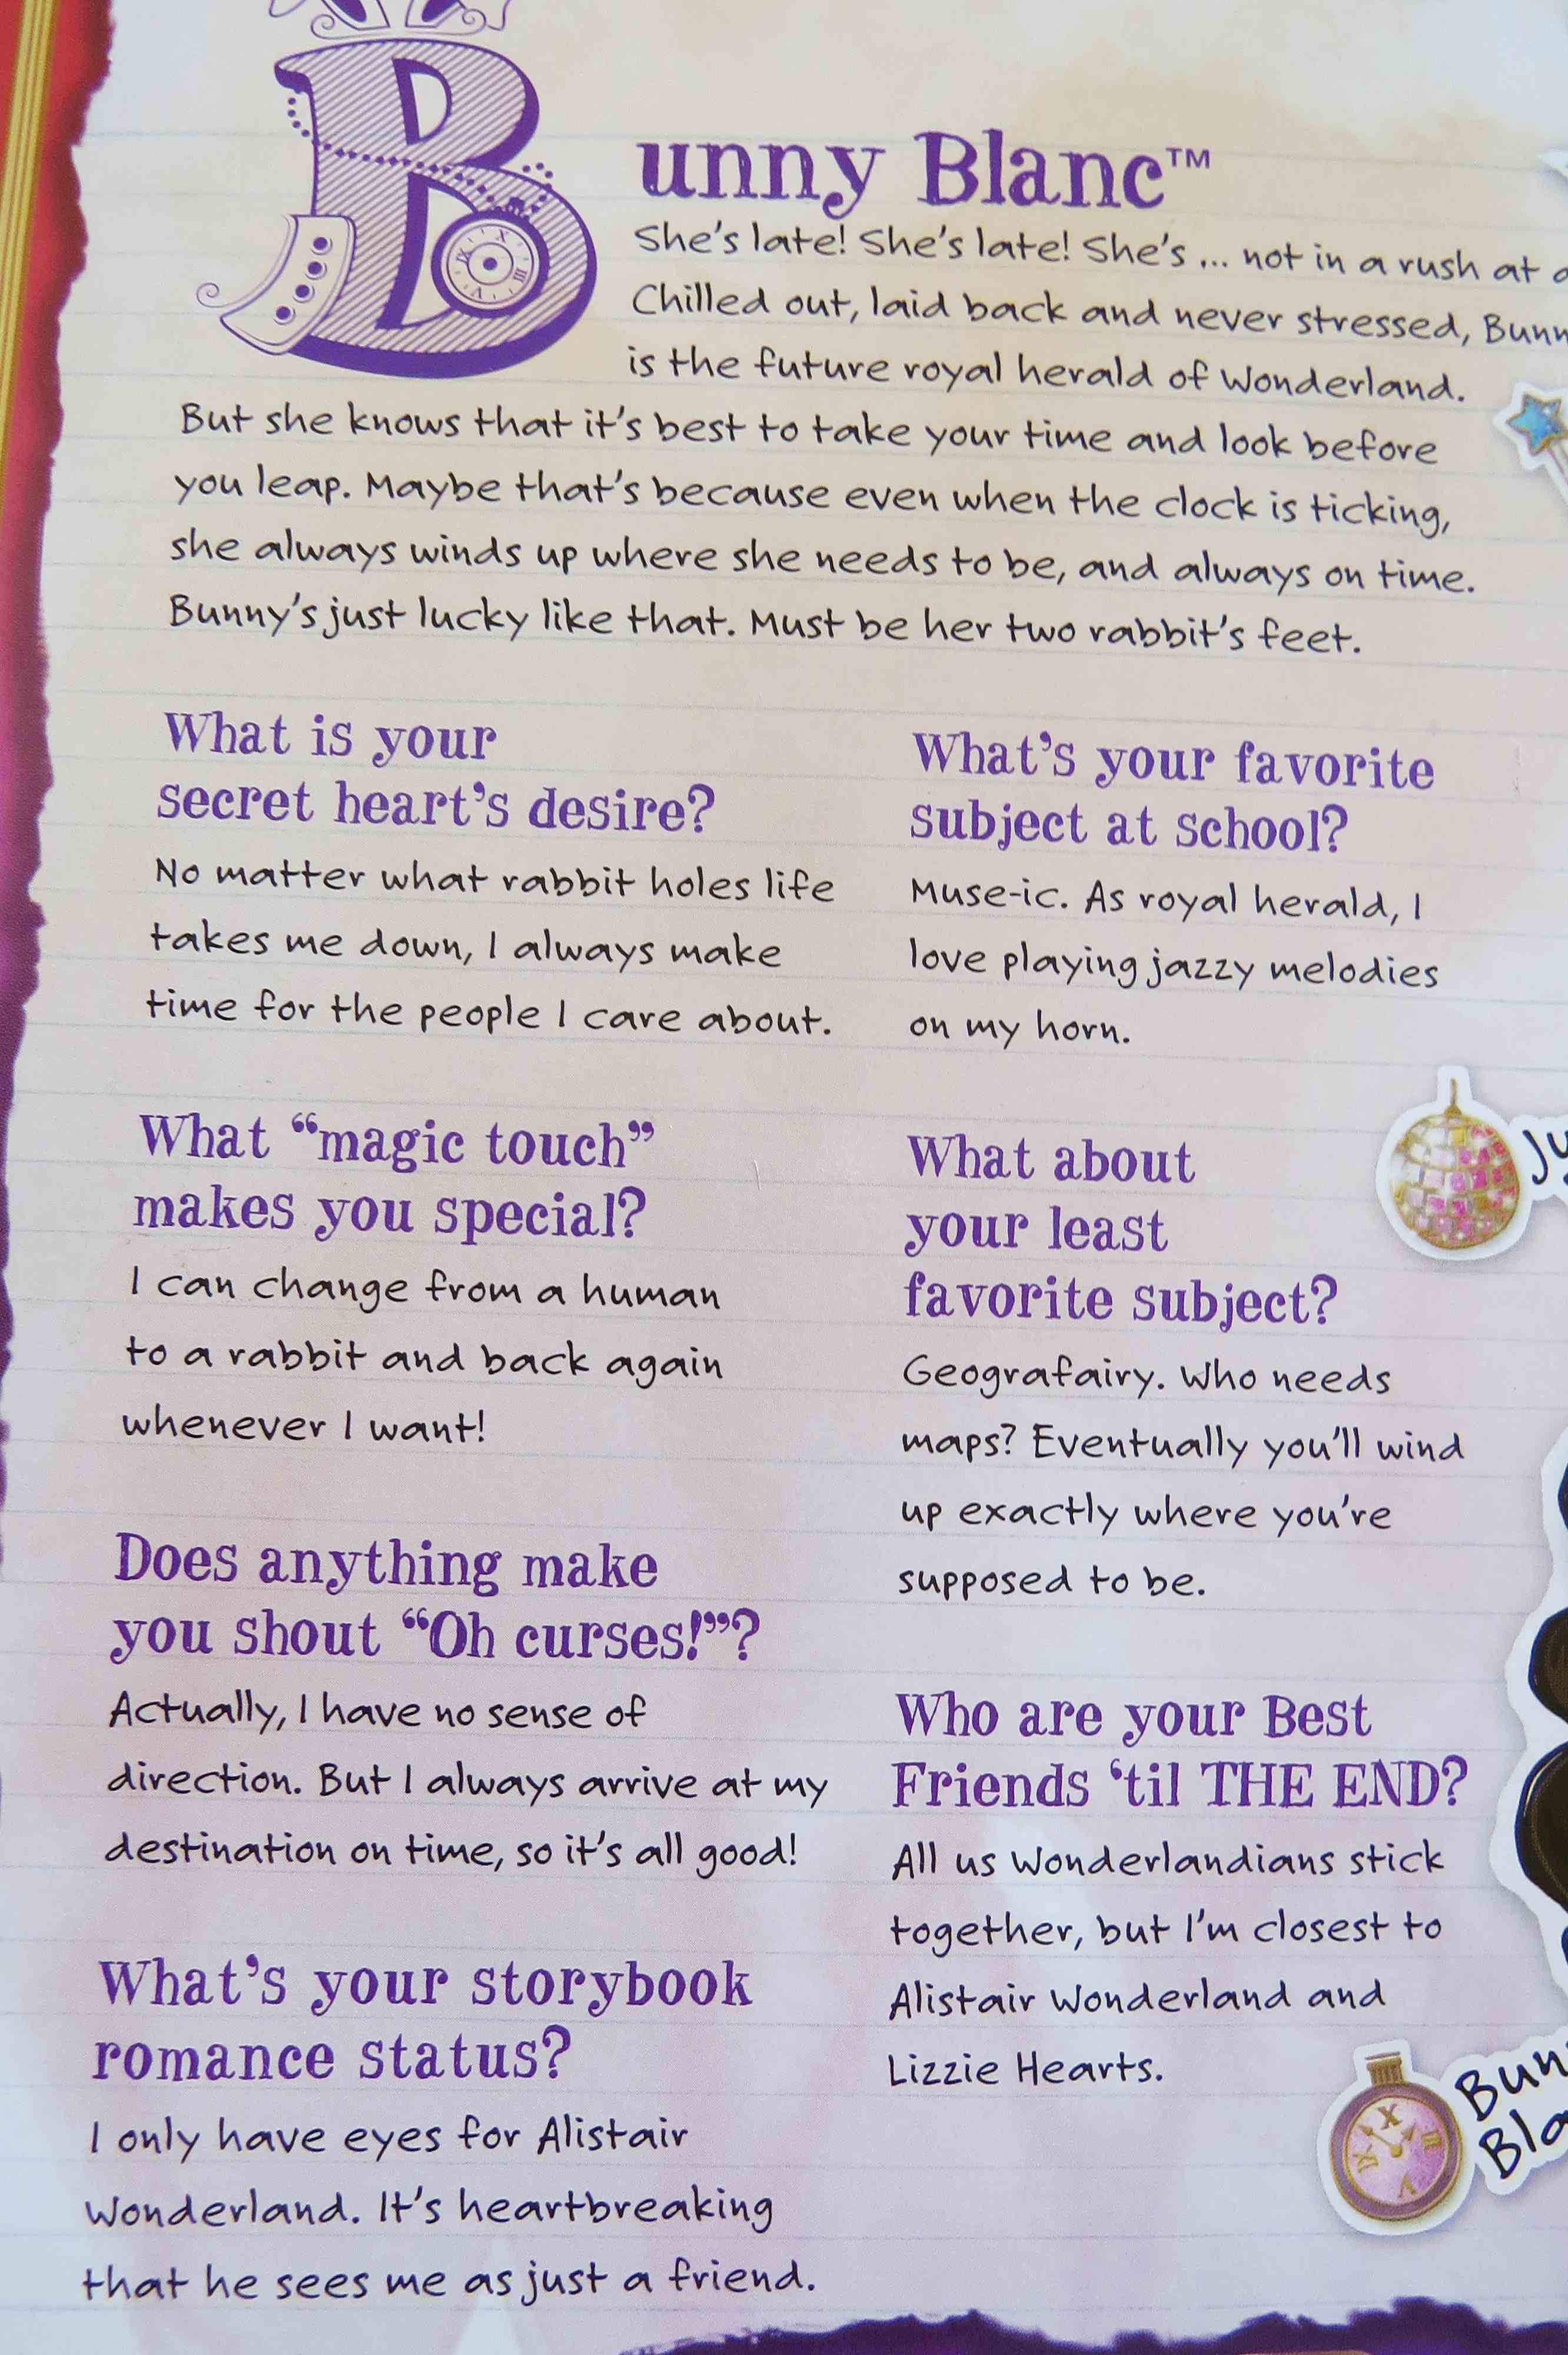 Bunny Blanc™
She's late! She's late! She's ... not in a rush at
Chilled out, laid back and never stressed,
is the future royal herald of Wonderland.
But she knows that it's best to take your time and look before
you leap. Maybe that's because even when the clock is ticking,
she always winds up where she needs to be, and always on time.
Bunny's just lucky like that. Must be her two rabbit's feet.
What is your
secret heart's desire?
No matter what rabbit holes life
takes me down, I always make
time for the people I care about.
What “magic touch”
makes you special?
I can change from a human
to a rabbit and back again
whenever I want!
Does anything make
you shout “Oh curses!”?
Actually, I have no sense of
direction. But I always arrive at my
destination on time, so it's all good!
What's your storybook
romance status?
I only have eyes for Alistair
Wonderland. It's heartbreaking
that he sees me as just a friend.
What's your favorite
subject at school?
Muse-ic. As royal herald, I
love playing jazzy melodies
on my horn.
What about
your least
favorite subject?
Geografairy. Who needs
maps? Eventually you'll wind
up exactly where you're
supposed to be.
Who are your Best
Friends ‘til THE END?
All us Wonderlandians stick
together, but I'm closest to
Alistair Wonderland and
Lizzie Hearts.